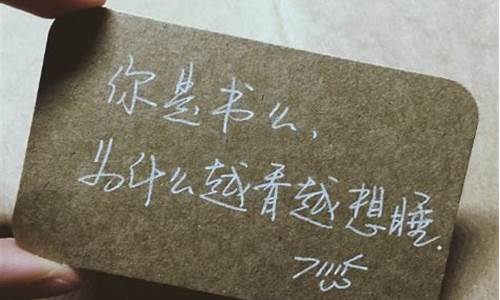 你是书么，
为什么越看越想睡.